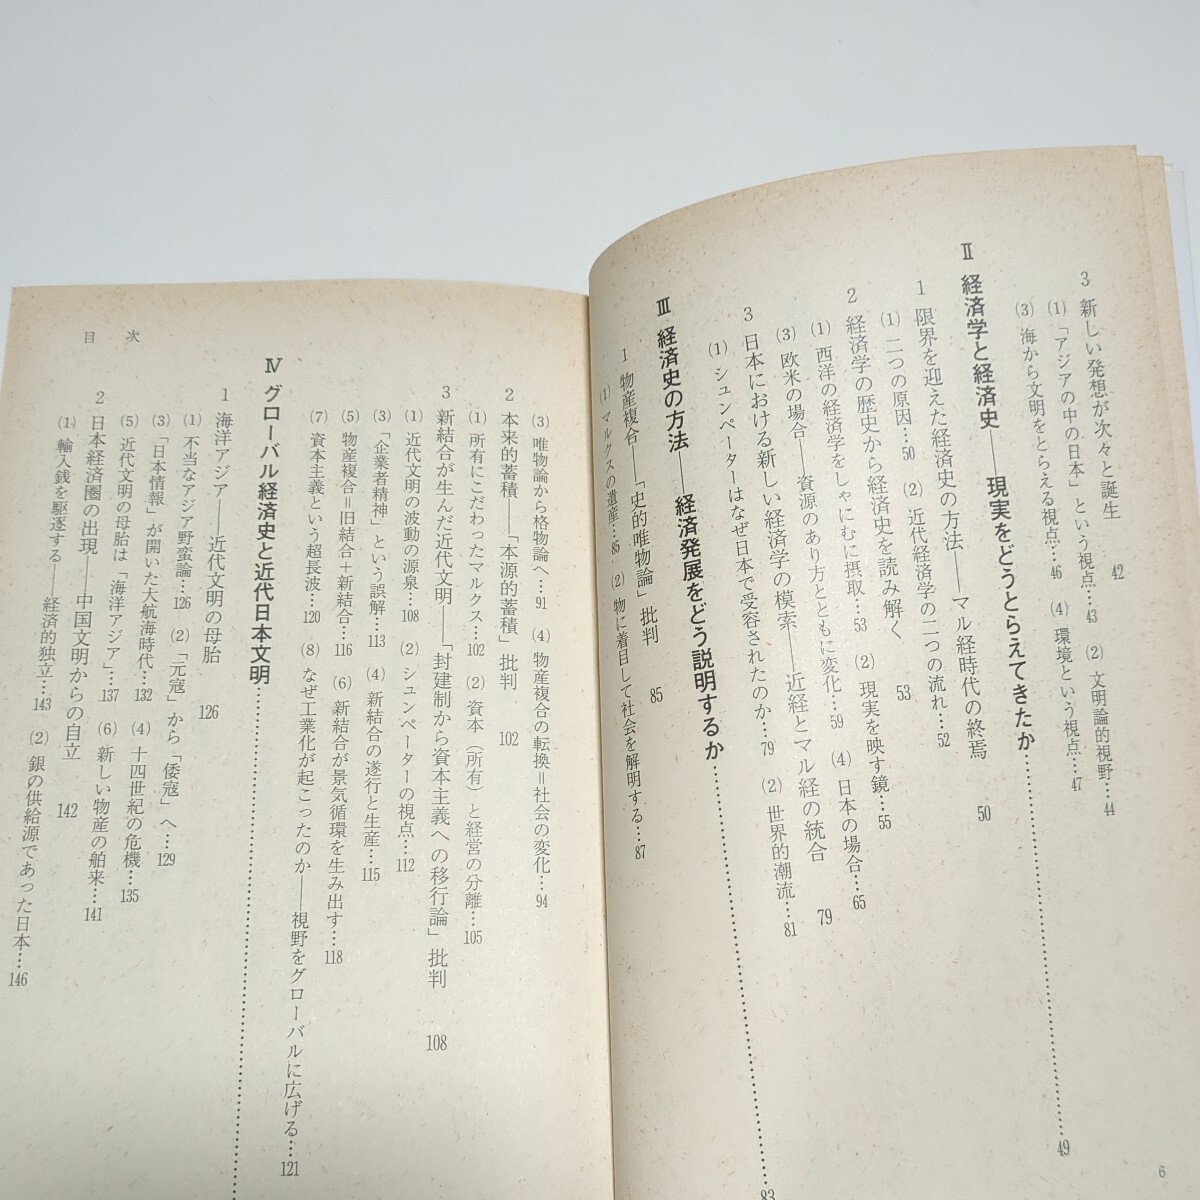 3 新しい発想が次々と誕生 42
(1) 「アジアの中の日本」という視点…43 (2) 文明論的視野…44
(3) 海から文明をとらえる視点…46 (4) 環境という視点…47
Ⅱ 経済学と経済史――現実をどうとらえてきたか…………49
1 限界を迎えた経済史の方法――マル経時代の終焉 50
(1) 二つの原因…50 (2) 近代経済学の二つの流れ…52
2 経済学の歴史から経済史を読み解く 53
(1) 西洋の経済学をしゃにむに摂取…53 (2) 現実を映す鏡…55
(3) 欧米の場合――資源のあり方とともに変化…59 (4) 日本の場合…65
3 日本における新しい経済学の模索――近経とマル経の統合 79
(1) シュンペーターはなぜ日本で受容されたのか…79 (2) 世界的潮流…81
Ⅲ 経済史の方法――経済発展をどう説明するか…………83
1 物産複合――「史的唯物論」批判 85
(1) マルクスの遺産…85 (2) 物に着目して社会を解明する…87
6
(3) 唯物論から格物論へ…91 (4) 物産複合の転換＝社会の変化…94
2 本来的蓄積――「本源的蓄積」批判 102
(1) 所有にこだわったマルクス…102 (2) 資本（所有）と経営の分離…105
3 新結合が生んだ近代文明――「封建制から資本主義への移行論」批判 108
(1) 近代文明の波動の源泉…108 (2) シュンペーターの視点…112
(3) 「企業者精神」という誤解…113 (4) 新結合の遂行と生産…115
(5) 物産複合＝旧結合＋新結合…116 (6) 新結合が景気循環を生み出す…118
(7) 資本主義という超長波…120 (8) なぜ工業化が起こったのか――視野をグローバルに広げる…121
Ⅳ グローバル経済史と近代日本文明…………
1 海洋アジア――近代文明の母胎 126
(1) 不当なアジア野蛮論…126 (2) 「元寇」から「倭寇」へ…129
(3) 「日本情報」が開いた大航海時代…132 (4) 十四世紀の危機…135
(5) 近代文明の母胎は「海洋アジア」…137 (6) 新しい物産の舶来…141
2 日本経済圏の出現――中国文明からの自立 142
(1) 輸入銭を駆逐する――経済的独立…143 (2) 銀の供給源であった日本…146
目次